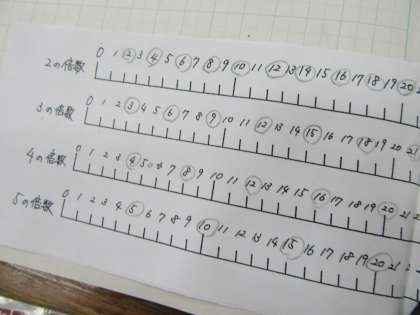 2の倍数 0 1 2 3 4 5 6 7 8 9 10 11 12 13 14 15 16 17 18 19 20
3の倍数 0 1 2 3 4 5 6 7 8 9 10 11 12 13 14 15 16 17 18 19 20 21
4の倍数 0 1 2 3 4 5 6 7 8 9 10 11 12 13 14 15 16 17 18 19 20 21
5の倍数 0 1 2 3 4 5 6 7 8 9 10 11 12 13 14 15 16 17 18 19 20 21